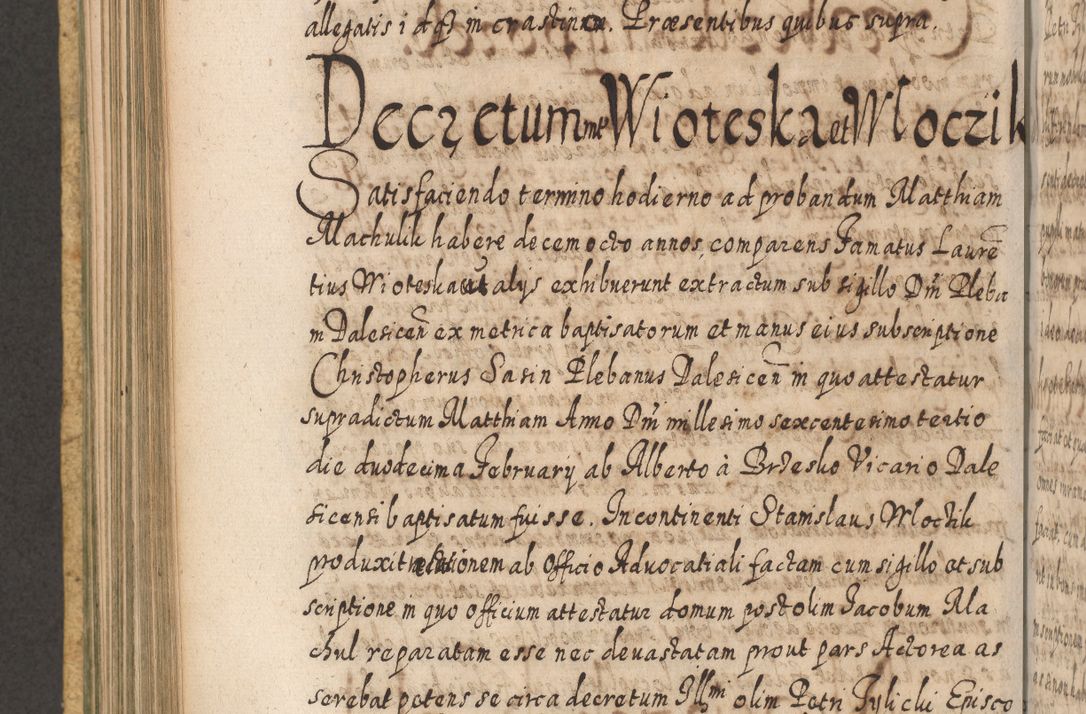 allegatis i dqȝ in crastinum. Præsentibus quibus supra.
Decretum inter Wioteska et Wloczik
Satisfaciendo termino hodierno ad probandum Matthiam
Machulik habere decem octo annos, comparens Famatus Lauren̄
tius Wioteska et alijs exhibuerunt extractum sub sigillo Dn̄i Pleba
m Dalesicen̄ ex metrica baptisatorum et manus eius subscriptione
Christopherus Sasin Plebanus Dalesicen̄ in quo attestatur
supradictum Matthiam Anno Dn̄i millesimo sexcentesimo tertio
die duodecima February ab Alberto à Brzesko Vicario Dale
sicensi baptisatum fuisse. Incontinenti Stanislaus Wloczik
produxit relationem ab Officio Advocatiali factam cum sigillo et sub
scriptione in quo Officium attestatur domum post olim Jacobum Ma
chul reparatam esse nec devastatam prout pars Actorea as
serebat petens se circa decretum Illmi olim Petri Tylicki Episco